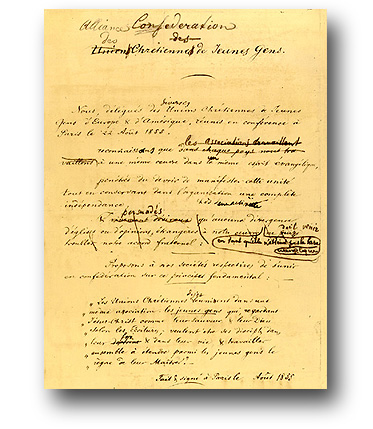 Alliance Confédération
des des
Unions Chrétiennes de Jeunes Gens.
Nous délégués des diverses Unions Chrétiennes de Jeunes
Gens d'Europe & d'Amérique, réunis en conférence à
Paris le 22 Août 1855.
que les associations travaillent
à une même oeuvre dans le même esprit évangélique,
du devoir de manifester cette unité
tout en conservant dans l'organisation une complète
indépendance;
persuadés
qu'aucune divergence
d'église ou opinions, étrangères à
troubler notre accord fraternel;
Proposons à nos Sociétés respectives de s'unir
en confédération sur ce principe fondamental:
Les Unions Chrétiennes dans une
même association les jeunes gens qui, regardant
Jésus-Christ comme leur Sauveur & leur Dieu
selon les Ecritures, veulent être ses disciples dans
leur foi & dans leur vie & travailler
ensemble à étendre parmi les jeunes gens le
règne de leur Maître.
Fait & signé à Paris le Août 1855